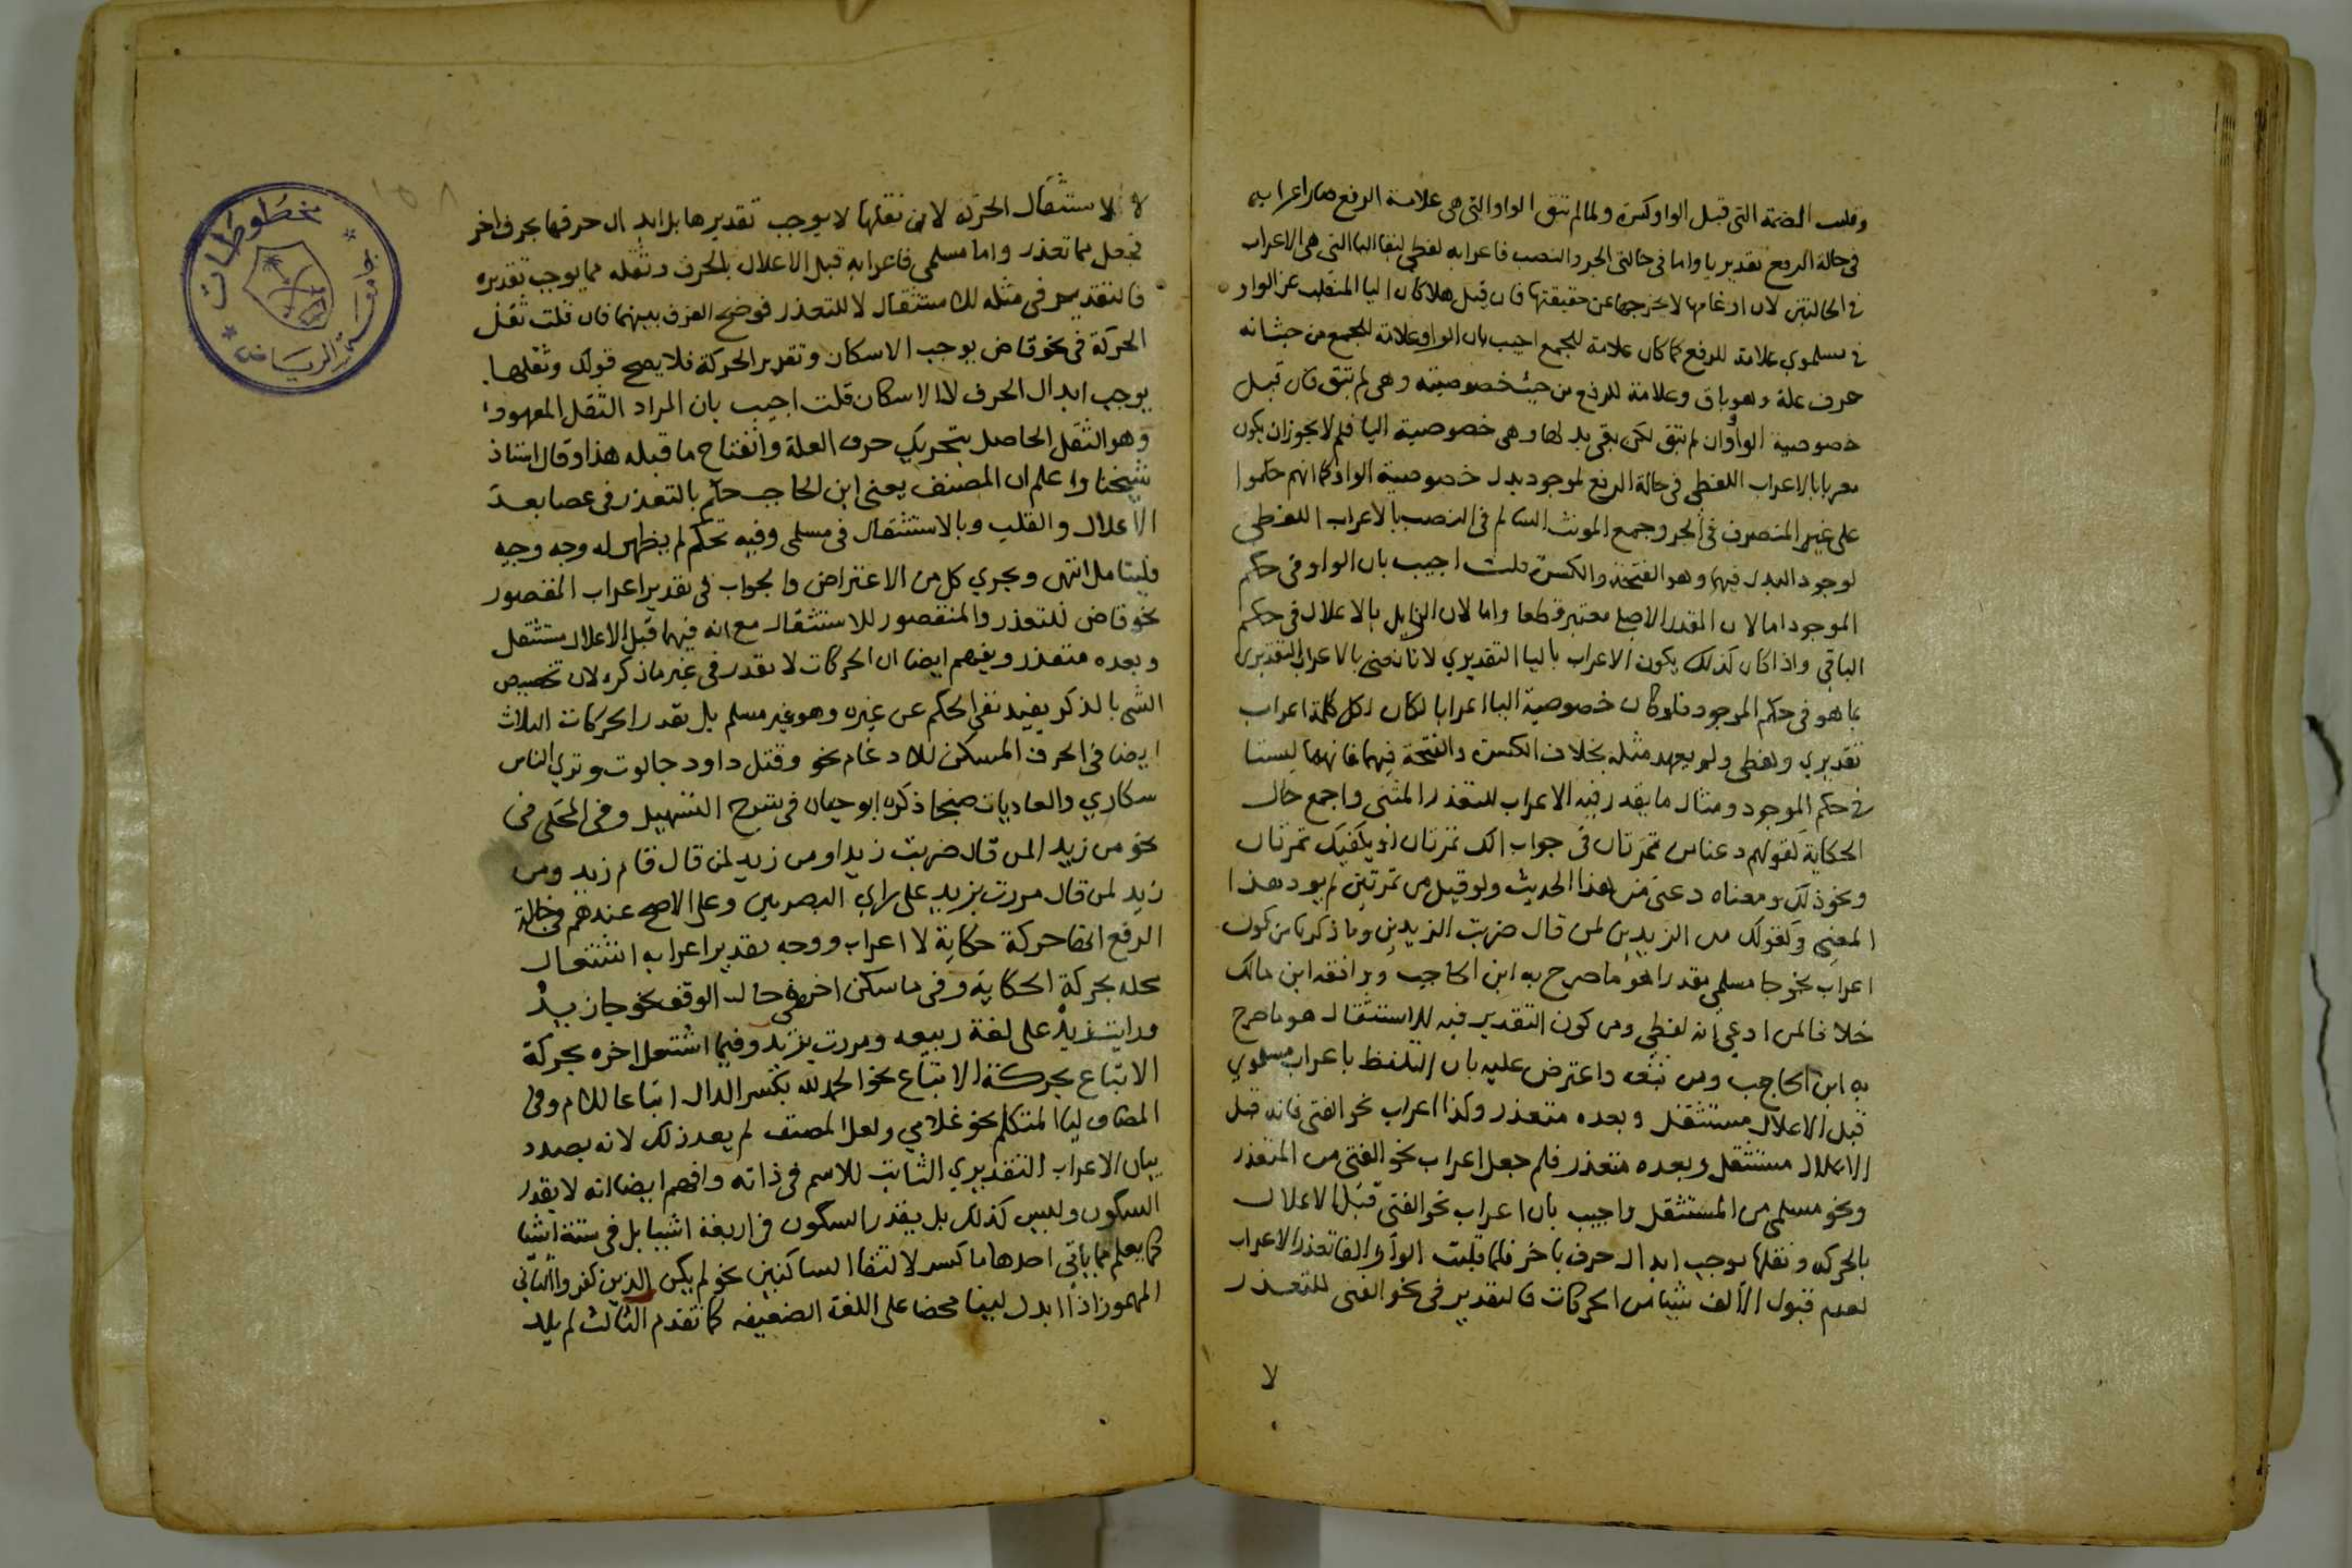 وقلبت الضمة التى قبل الواو كسرة ولما لم تبق الواو التى هى علامة الرفع صار اعرابه
فى حالة الرفع تقديريا واما فى حالتى الجر والنصب فاعرابه لفظى لبقا اليا التى هى الاعراب
فى الحالتين لان ادغامها لا يخرجها عن حقيقتها فان قيل هلا كان اليا المنقلب عن الواو
فى مسلموى علامة للرفع كما كان علامة للجمع اجيب بان الواو علامة للجمع من حيث انه
حرف علة وهو باق وعلامة للرفع من حيث خصوصيته وهى لم تبق فان قيل
خصوصية الواو وان لم تبق لكن بقى بدلها وهى خصوصية اليا فلم لا يجوز ان يكون
معربا بالاعراب اللفظى فى حالة الرفع لوجود بدل خصوصية الواو كما انهم حكموا
على غير المنصرف فى الجر وجمع المونث السالم فى النصب بالاعراب اللفظى
لوجود البدل فيهما وهو الفتحة والكسرة قلت اجيب بان الواو فى حكم
الموجود اما لان المقدر الاصلى معتبر قطعا واما لان الزايل بالاعلال فى حكم
الباقى واذا كان كذلك يكون الاعراب باليا التقديري لانا نعنى بالاعراب التقديرى
بما هو فى حكم الموجود فلو كان خصوصية اليا اعرابا لكان لكل كلمة اعراب
تقديري ولفظى ولم يعهد مثله بخلاف الكسرة والفتحة فيهما فانهما ليستا
فى حكم الموجود ومثال ما يقدر فيه الاعراب للتعذر المثنى واجمع حال
الحكاية كقولهم دعنا من تمرتان فى جواب الك تمرتان او يكفيك تمرتان
ونحو ذلك ومعناه دعنى من هذا الحديث ولو قيل من تمرتين لم يود هذا
المعنى وكقولك من الزيدين لمن قال ضربت الزيدين وما ذكرنا من كون
اعراب نحو جا مسلمى مقدرا هو ما صرح به ابن الحاجب ووافقه ابن مالك
خلافا لمن ادعى انه لفظى ومن كون التقدير فيه للاستثقال هو ما صرح
به ابن الحاجب ومن تبعه واعترض عليه بان التلفظ باعراب مسلموي
قبل الاعلال مستثقل وبعده متعذر وكذا اعراب نحو الفتى فانه قبل
الاعلال مستثقل وبعده متعذر فلم جعل اعراب نحو الفتى من المتعذر
ونحو مسلمى من المستثقل واجيب بان اعراب نحو الفتى قبل الاعلال
بالحركه وثقلها يوجب ابدال حرف باخر فلما قلبت الواو الفا تعذر الاعراب
لعدم قبول الالف شيا من الحركات فالتقدير فى نحو الفتى للتعذر
لا
لا لاستثقال الحركة لان ثقلها لا يوجب تقديرها بل ابدال حرفها بحرف اخر
فجعل مما تعذر واما مسلمى فاعرابه قبل الاعلال بالحرف وثقله مما يوجب تقديره
فالتقدير فى مثله للاستثقال لا للتعذر فوضح الفرق بينهما فان قلت ثقل
الحركة فى نحو قاض يوجب الاسكان وتقدير الحركة فلا يصح قولك وثقلها
يوجب ابدال الحرف لا الاسكان قلت اجيب بان المراد الثقل المعهود
وهو الثقل الحاصل بتحريك حرف العلة وانفتاح ما قبله هذا وقال استاذ
شيخنا واعلم ان المصنف يعنى ابن الحاجب حكم بالتعذر فى عصا بعد
الاعلال والقلب وبالاستثقال فى مسلمى وفيه تحكم لم يظهر له وجه وجيه
فليتامل انتهى ويجري كل من الاعتراض والجواب فى تقدير اعراب المقصور
نحو قاض للتعذر والمنقصور للاستثقال مع انه فيهما قبل الاعلال مستثقل
وبعده متعذر ويفهم ايضا ان الحركات لا تقدر فى غير ما ذكره لان تخصيص
الشى بالذكر يفيد نفى الحكم عن غيره وهو غير مسلم بل تقدر الحركات الثلاث
ايضا فى الحرف المسكن للادغام نحو وقتل داود جالوت وتري الناس
سكاري والعاديات صبحا ذكره ابو حيان فى شرح التسهيل وفى المحكى فى
نحو من زيدا لمن قال ضربت زيدا ومن زيد لمن قال قام زيد ومن
زيد لمن قال مررت بزيد على راي البصريين وعلى الاصح عندهم فى حالة
الرفع انها حركة حكاية لا اعراب ووجه تقدير اعرابه اشتغال
محله بحركة الحكاية وفى ما سكن اخره فى حالة الوقف نحو جا زيد
ورايت زيد على لغة ربيعه ومررت بزيد وفيما اشتغل اخره بحركة
الاتباع بحركة الاتباع نحو الحمد لله بكسر الدال اتباعا للام وفى
المضاف ليا المتكلم نحو غلامي ولعل المصنف لم يعد ذلك لانه بصدد
بيان الاعراب التقديري الثابت للاسم فى ذاته وافهم ايضا انه لا يقدر
السكون وليس كذلك بل يقدر السكون فى اربعة اشيا بل فى ستة اشيا
كما يعلم مما ياتى احدها ما كسر لالتقا الساكنين نحو لم يكن الذين كفروا الثانى
المهموز اذا ابدل لينا محضا على اللغة الضعيفه كما تقدم الثالث لم يلد
مخطوطات
جامعة الرياض